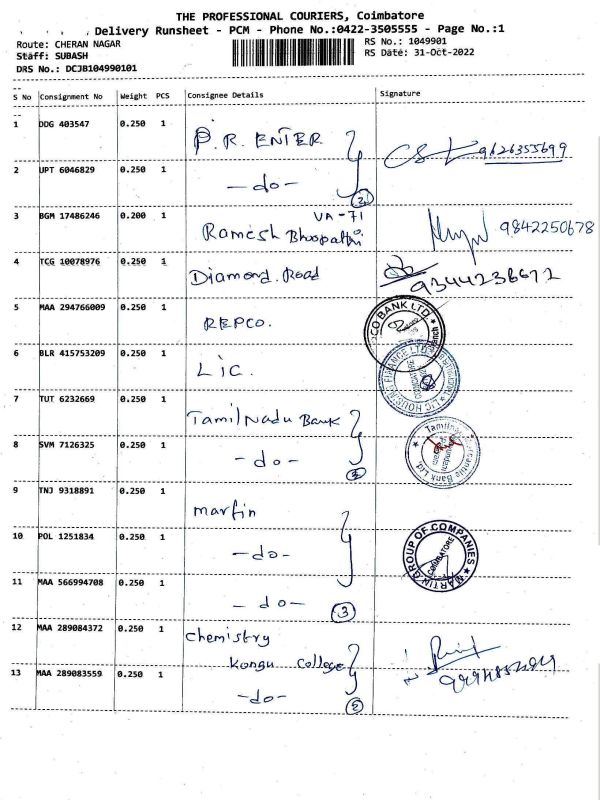 THE PROFESSIONAL COURIERS, Coimbatore
Delivery Runsheet - PCM - Phone No.:0422-3505555 - Page No.:1
Route: CHERAN NAGAR RS No.: 1049901
Staff: SUBASH RS Date: 31-Oct-2022
DRS No.: DCJB104990101
S No Consignment No Weight PCS Consignee Details Signature
1 DDG 403547 0.250 1 P.R. ENTER 9626355699
2 UPT 6046829 0.250 1 -do- 2
VA-71
3 BGM 17486246 0.200 1 Ramesh Bhoopathi 9842250678
4 TCG 10078976 0.250 1 Diamond. Road 9344236672
5 MAA 294766009 0.250 1 REPCO. CO BANK LTD
6 BLR 415753209 0.250 1 LIC. LIC HOUSING FINANCE LTD
7 TUT 6232669 0.250 1 Tamil Nadu Bank
8 SVM 7126325 0.250 1 -do- 2 Tamilnad Mercantile Bank Ltd
9 TNJ 9318891 0.250 1 martin
10 POL 1251834 0.250 1 -do- MARTIN GROUP OF COMPANIES COIMBATORE
11 MAA 566994708 0.250 1 -do- 3
12 MAA 289084372 0.250 1 Chemistry
Kongu College
13 MAA 289083559 0.250 1 -do- 2